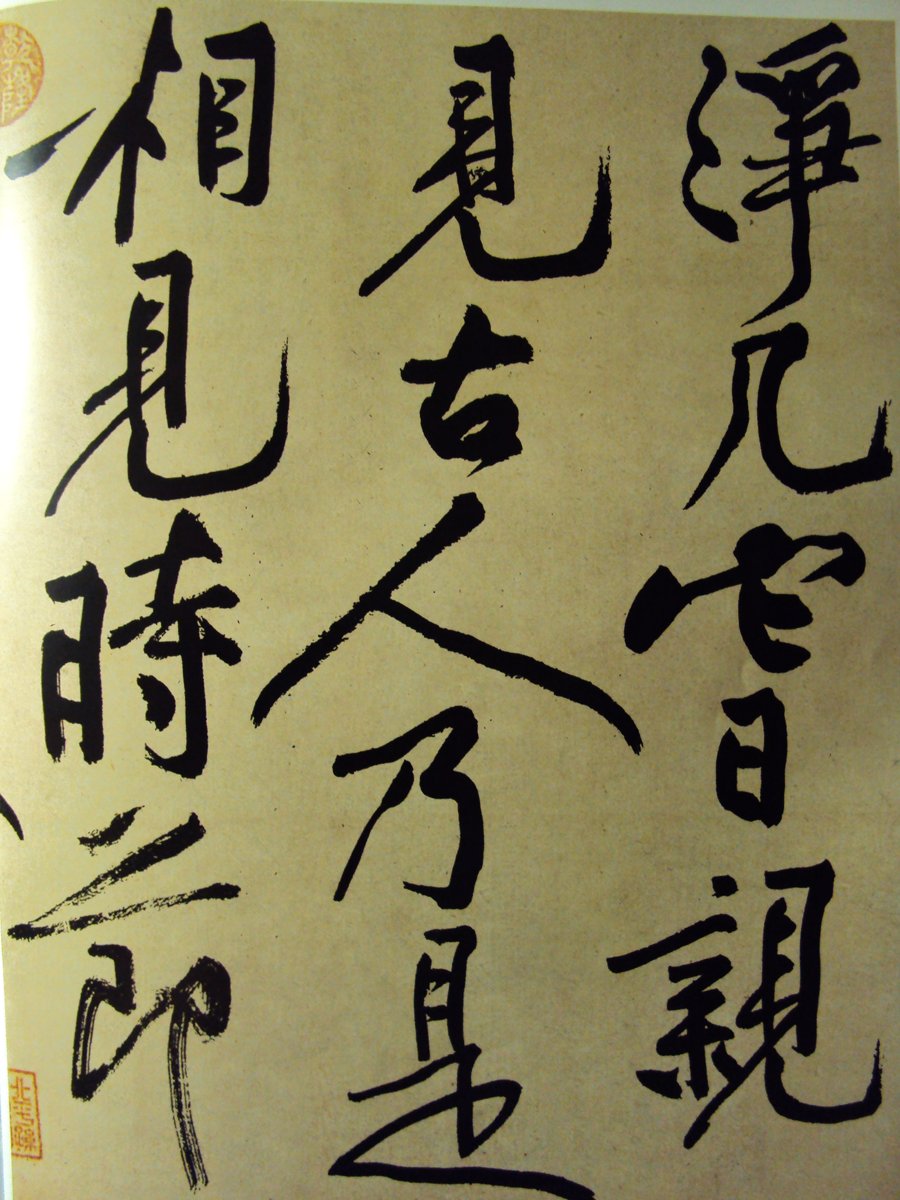 淨几它日親
見古人乃是
相見時節